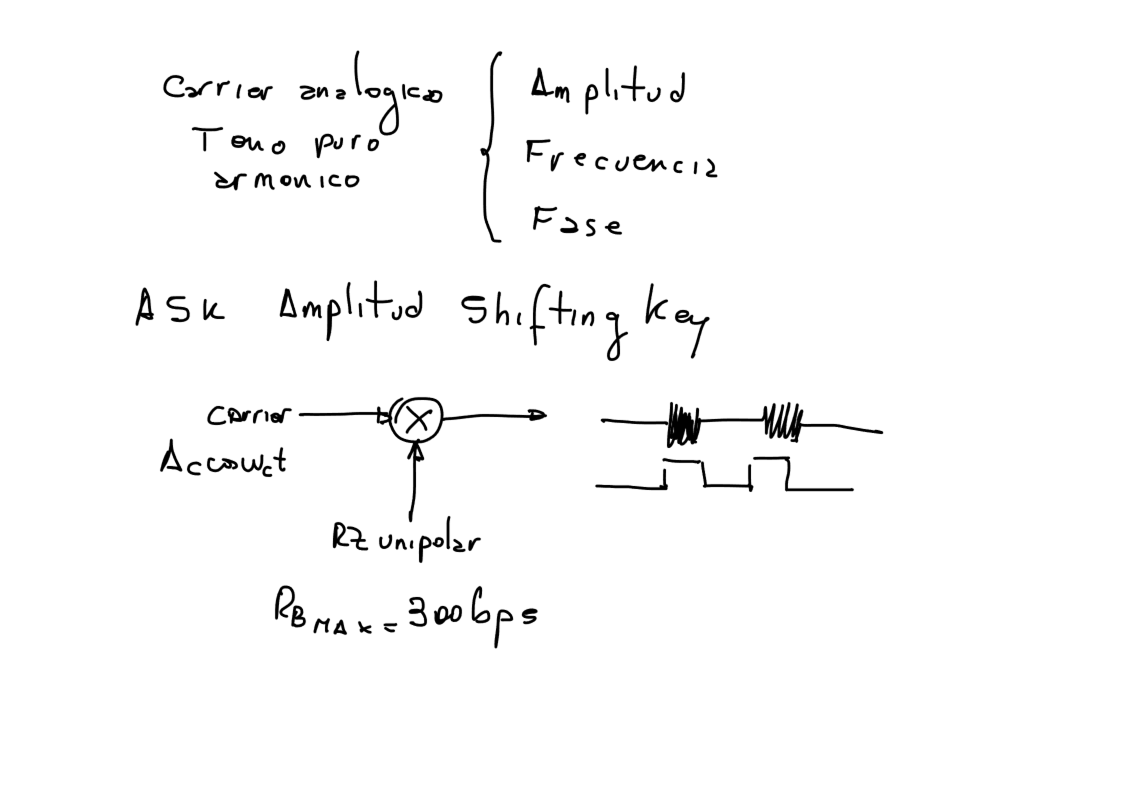 Carrier analogico
Tono puro
armonico
Amplitud
Frecuencia
Fase
ASK Amplitud Shifting Key
Carrier
Ac cos wct
RZ unipolar
RB MAX = 300 bps